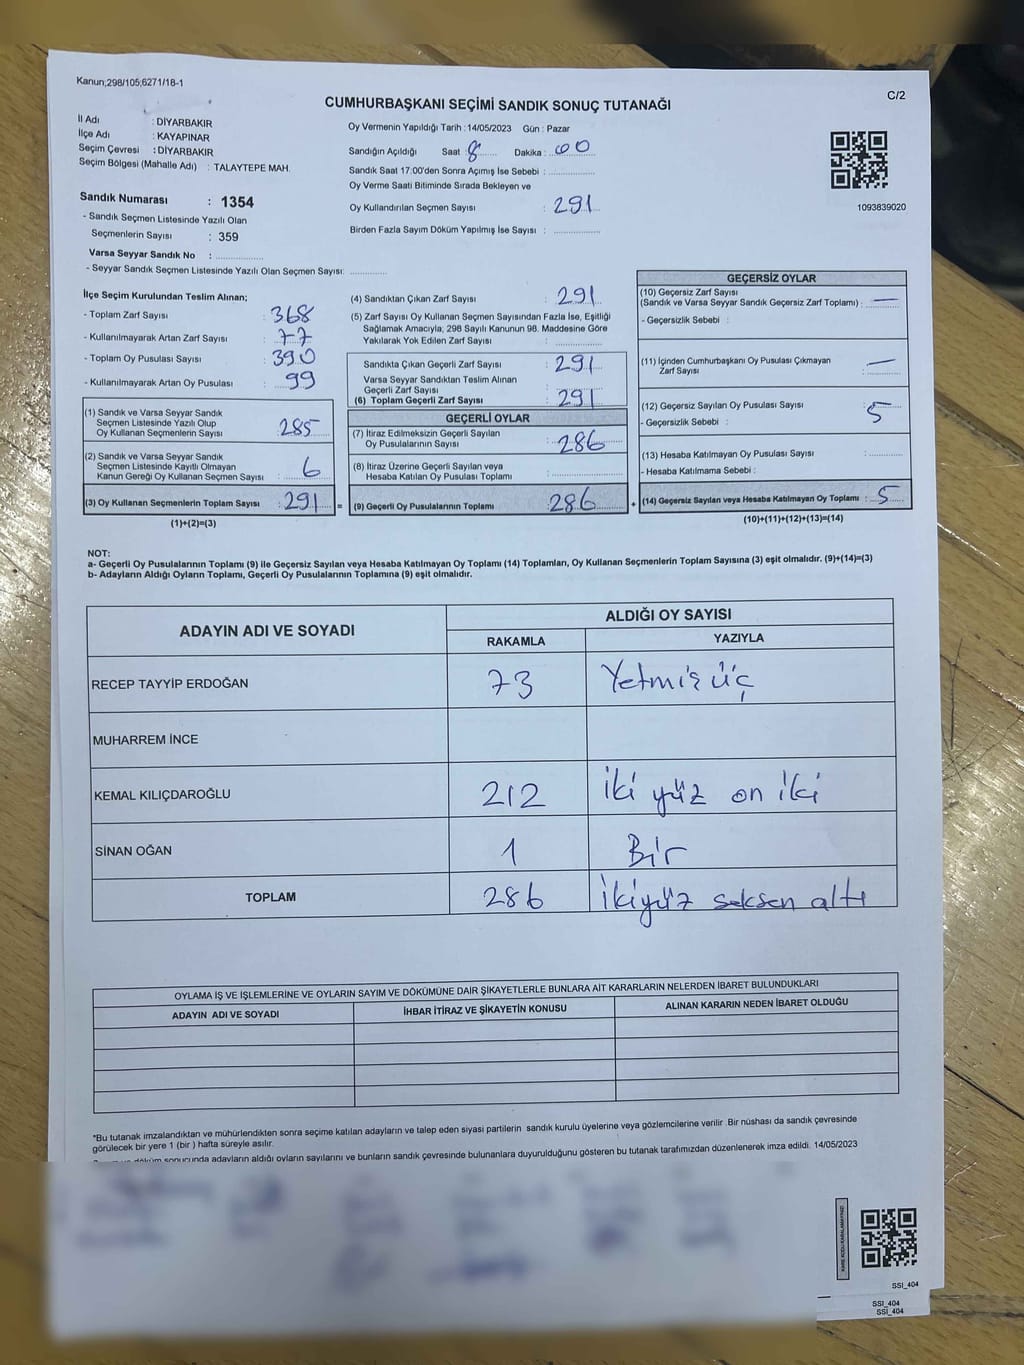 Kanun;298/105;6271/18-1
C/2
CUMHURBAŞKANI SEÇİMİ SANDIK SONUÇ TUTANAĞI
İl Adı : DİYARBAKIR
İlçe Adı : KAYAPINAR
Seçim Çevresi : DİYARBAKIR
Seçim Bölgesi (Mahalle Adı) : TALAYTEPE MAH.
Sandık Numarası : 1354
- Sandık Seçmen Listesinde Yazılı Olan
Seçmenlerin Sayısı : 359
Varsa Seyyar Sandık No :
- Seyyar Sandık Seçmen Listesinde Yazılı Olan Seçmen Sayısı:
Oy Vermenin Yapıldığı Tarih : 14/05/2023 Gün : Pazar
Sandığın Açıldığı Saat : 8 Dakika : 00
Sandık Saat 17:00'den Sonra Açımış İse Sebebi :
Oy Verme Saati Bitiminde Sırada Bekleyen ve
Oy Kullandırılan Seçmen Sayısı : 291
Birden Fazla Sayım Döküm Yapılmış İse Sayısı :
1093839020
İlçe Seçim Kurulundan Teslim Alınan;
- Toplam Zarf Sayısı : 368
- Kullanılmayarak Artan Zarf Sayısı : 77
- Toplam Oy Pusulası Sayısı : 390
- Kullanılmayarak Artan Oy Pusulası : 99
(1) Sandık ve Varsa Seyyar Sandık
Seçmen Listesinde Yazılı Olup
Oy Kullanan Seçmenlerin Sayısı : 285
(2) Sandık ve Varsa Seyyar Sandık
Seçmen Listesinde Kayıtlı Olmayan
Kanun Gereği Oy Kullanan Seçmen Sayısı : 6
(3) Oy Kullanan Seçmenlerin Toplam Sayısı : 291 =
(1)+(2)=(3)
(4) Sandıktan Çıkan Zarf Sayısı : 291
(5) Zarf Sayısı Oy Kullanan Seçmen Sayısından Fazla İse, Eşitliği
Sağlamak Amacıyla; 298 Sayılı Kanunun 98. Maddesine Göre
Yakılarak Yok Edilen Zarf Sayısı :
Sandıkta Çıkan Geçerli Zarf Sayısı : 291
Varsa Seyyar Sandıktan Teslim Alınan
Geçerli Zarf Sayısı
(6) Toplam Geçerli Zarf Sayısı : 291
GEÇERLİ OYLAR
(7) İtiraz Edilmeksizin Geçerli Sayılan
Oy Pusulalarının Sayısı : 286
(8) İtiraz Üzerine Geçerli Sayılan veya
Hesaba Katılan Oy Pusulası Toplamı :
(9) Geçerli Oy Pusulalarının Toplamı : 286 +
GEÇERSİZ OYLAR
(10) Geçersiz Zarf Sayısı
(Sandık ve Varsa Seyyar Sandık Geçersiz Zarf Toplamı) : —
- Geçersizlik Sebebi :
(11) İçinden Cumhurbaşkanı Oy Pusulası Çıkmayan
Zarf Sayısı : —
(12) Geçersiz Sayılan Oy Pusulası Sayısı : 5
- Geçersizlik Sebebi :
(13) Hesaba Katılmayan Oy Pusulası Sayısı :
- Hesaba Katılmama Sebebi :
(14) Geçersiz Sayılan veya Hesaba Katılmayan Oy Toplamı : 5
(10)+(11)+(12)+(13)=(14)
NOT:
a- Geçerli Oy Pusulalarının Toplamı (9) ile Geçersiz Sayılan veya Hesaba Katılmayan Oy Toplamı (14) Toplamları, Oy Kullanan Seçmenlerin Toplam Sayısına (3) eşit olmalıdır. (9)+(14)=(3)
b- Adayların Aldığı Oyların Toplamı, Geçerli Oy Pusulalarının Toplamına (9) eşit olmalıdır.
ADAYIN ADI VE SOYADI ALDIĞI OY SAYISI
RAKAMLA YAZIYLA
RECEP TAYYİP ERDOĞAN 73 Yetmiş üç
MUHARREM İNCE
KEMAL KILIÇDAROĞLU 212 İki yüz on iki
SİNAN OĞAN 1 Bir
TOPLAM 286 İkiyüz seksen altı
OYLAMA İŞ VE İŞLEMLERİNE VE OYLARIN SAYIM VE DÖKÜMÜNE DAİR ŞİKAYETLERLE BUNLARA AİT KARARLARIN NELERDEN İBARET BULUNDUKLARI
ADAYIN ADI VE SOYADI İHBAR İTİRAZ VE ŞİKAYETİN KONUSU ALINAN KARARIN NEDEN İBARET OLDUĞU
*Bu tutanak imzalandıktan ve mühürlendikten sonra seçime katılan adayların ve talep eden siyasi partilerin sandık kurulu üyelerine veya gözlemcilerine verilir. Bir nüshası da sandık çevresinde
görülecek bir yere 1 (bir) hafta süreyle asılır.
döküm sonucunda adayların aldığı oyların sayılarını ve bunların sandık çevresinde bulunanlara duyurulduğunu gösteren bu tutanak tarafımızdan düzenlenerek imza edildi. 14/05/2023
SSI_404
SSI_404
SSI_404